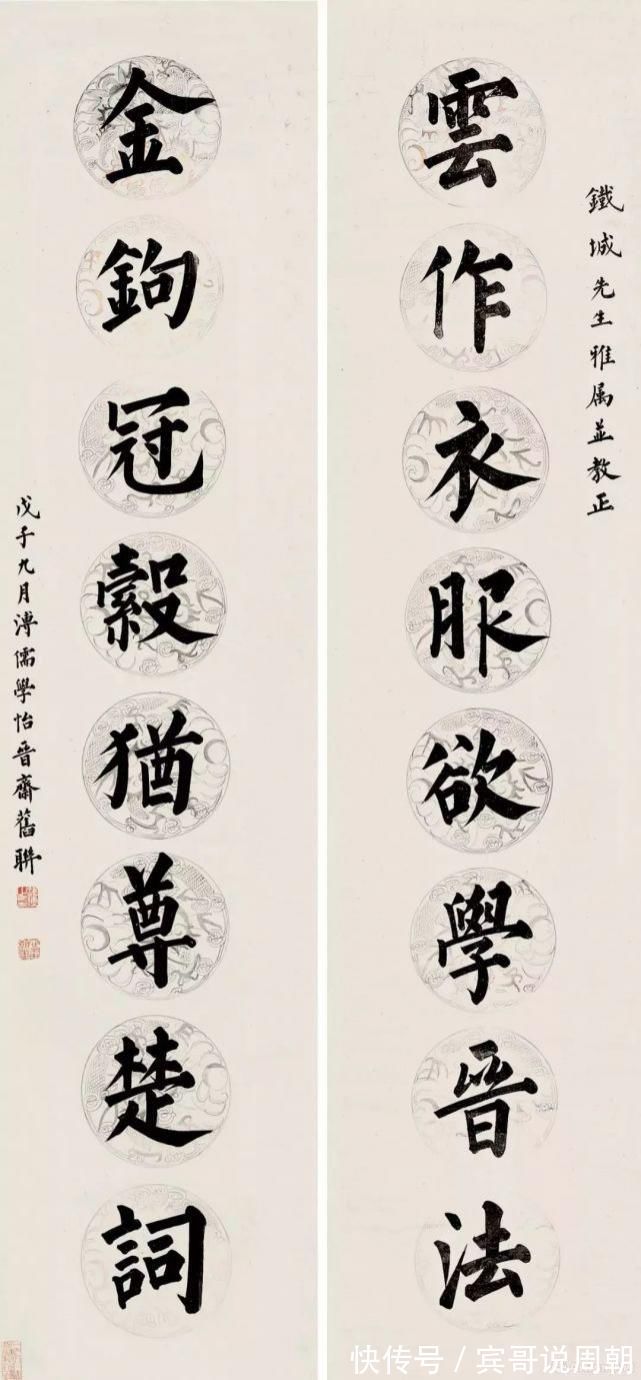 鐵城先生雅属並教正
雲作衣服欲學晉法
金鉤冠縠猶尊楚詞
戊子九月溥儒學怡晉齋舊聯
快传号/宾哥说周朝